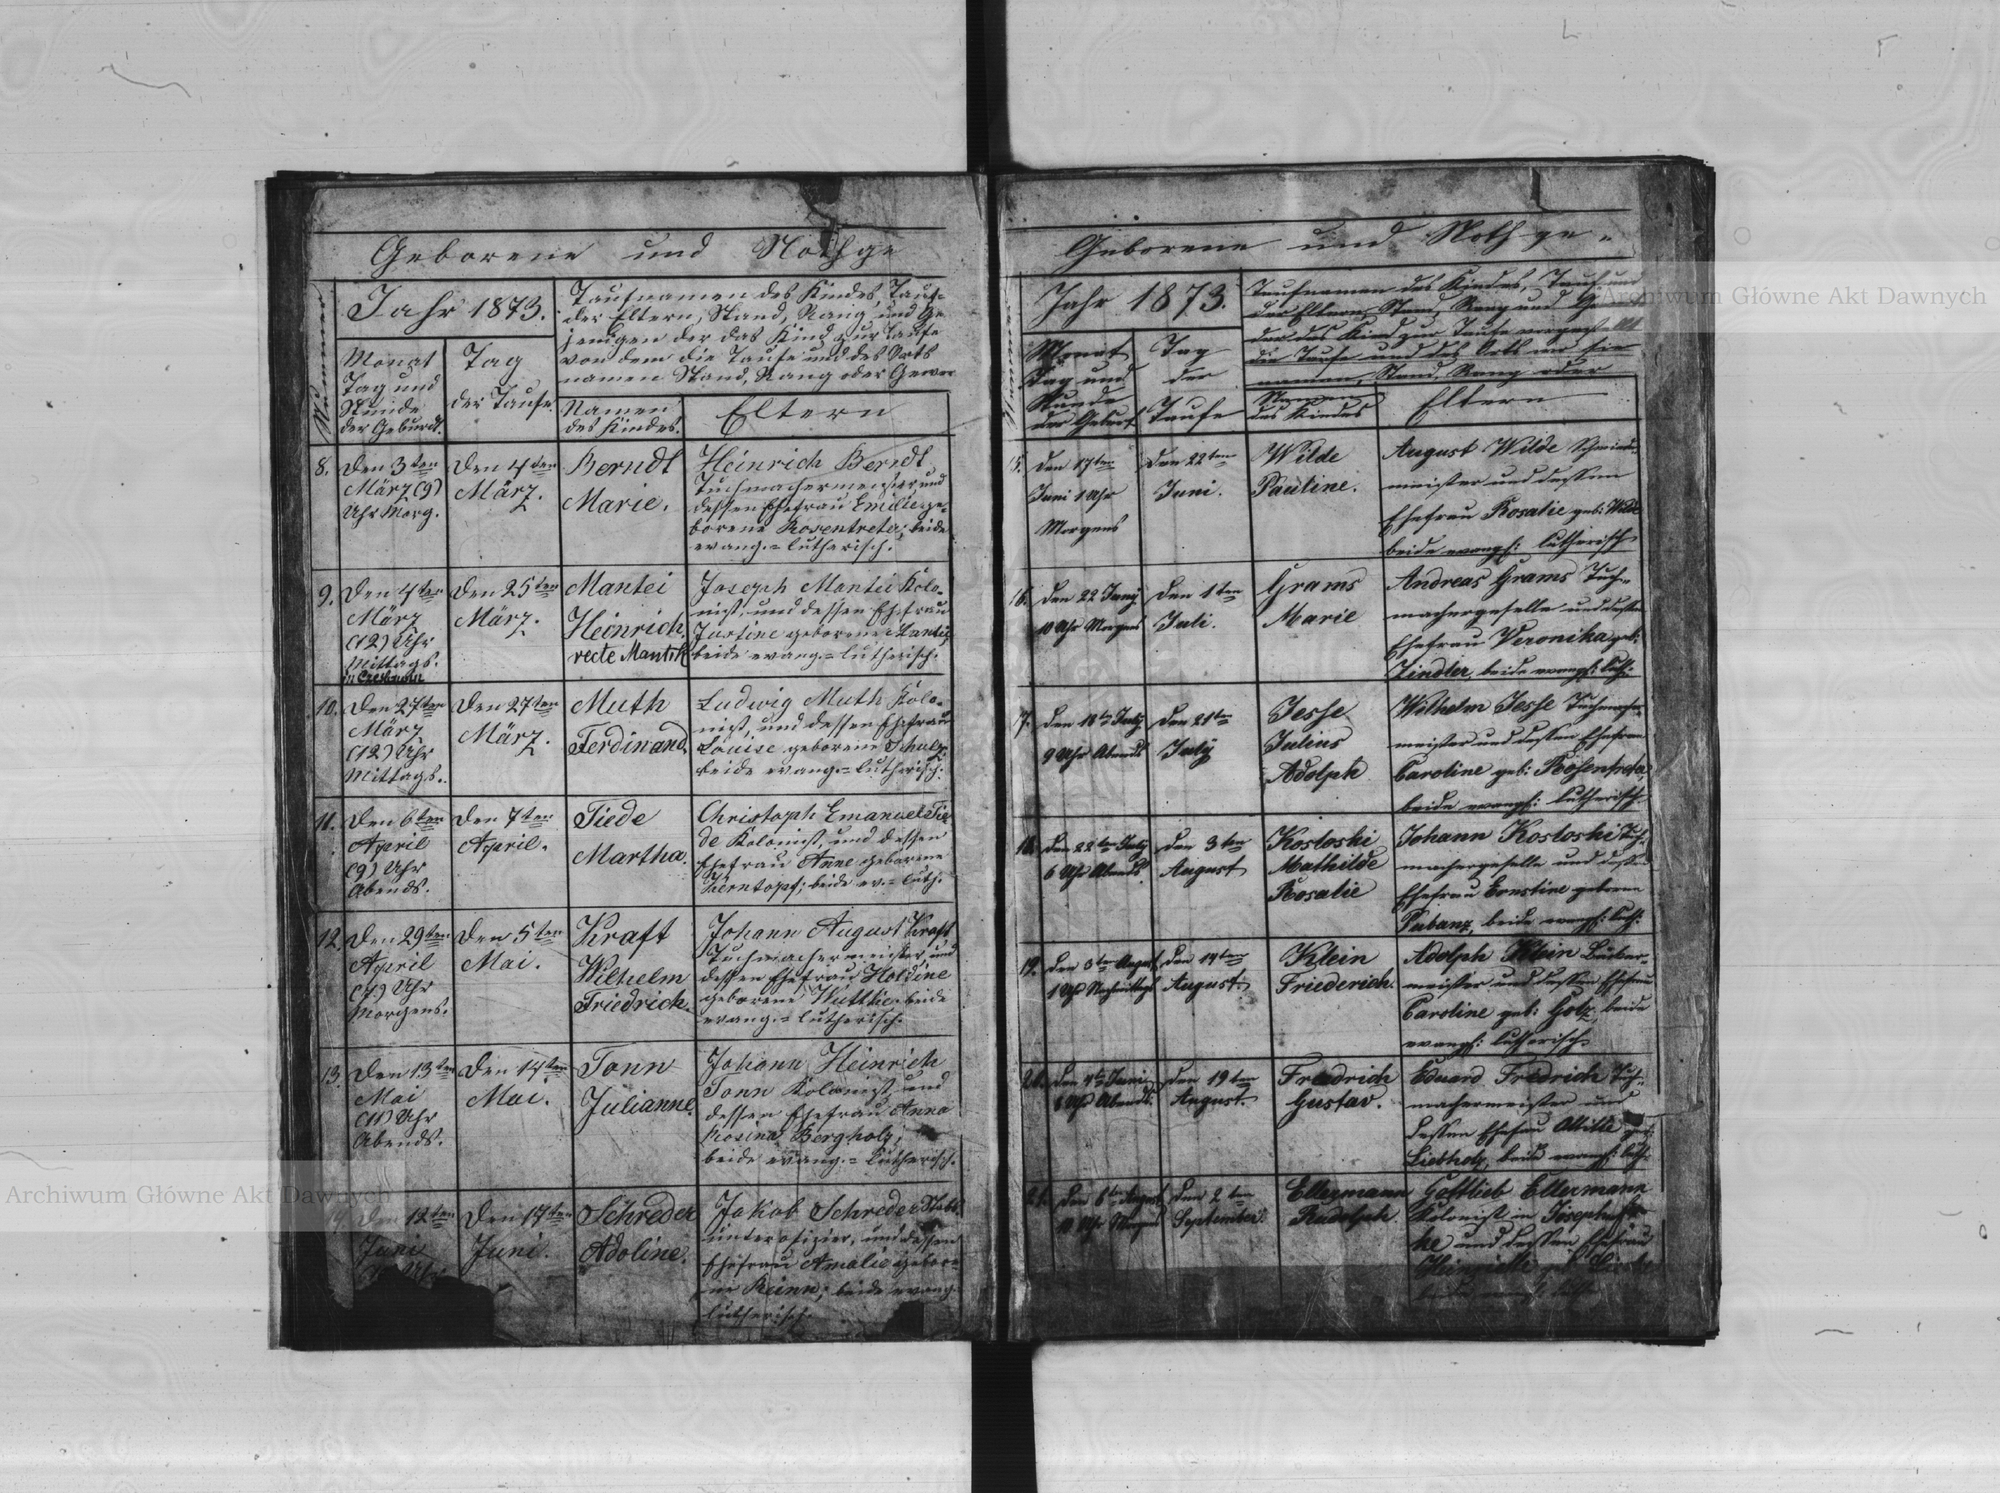 Geborene und Nothge
Nummer
Jahr 1873.
Taufnamen des Kindes, Tauf-
der Eltern, Stand, Rang und Ge
jenigen der das Kind zur Taufe
von dem die Taufe und des Orts
namen Stand, Rang oder Gewer
Monat
Tag und
Stunde
der Geburt.
Tag
der Taufe.
Namen
des Kindes.
Eltern
8.
Den 3ten
März (9)
Uhr Morg.
Den 4ten
März.
Berndt
Marie.
Heinrich Berndt
Tuchmachermeister und
dessen Ehefrau Emilie ge-
borene Rosentreta; beide
evang.= lutherisch.
9.
Den 4ten
März
(12) Uhr
Mittags.
Den 25ten
März.
Mantei
Heinrich.
recte Mantik
Joseph Mantei Kolo-
nist, und dessen Ehefrau
Justine geborene
beide evang.= lutherisch.
10.
Den 27ten
März
(12) Uhr
Mittags.
Den 27ten
März.
Muth
Ferdinand.
Ludwig Muth Kolo-
nist, und dessen Ehefrau
Louise geborene Schulz,
beide evang.= lutherisch.
11.
Den 6ten
April
(9) Uhr
Abends.
Den 7ten
April.
Tiede
Martha.
Christoph Emanuel Tie
de Kolonist, und dessen
Ehefrau Anne geborene
Zerntopf; beide ev.= luth.
12.
Den 29ten
April
(7) Uhr
Morgens.
Den 5ten
Mai.
Kraft
Wilhelm
Friedrich.
Johann August Kraft
Tuchmachermeister und
dessen Ehefrau Holdine
geborene Wuttke beide
evang.= lutherisch.
13.
Den 13ten
Mai
(11) Uhr
Abends.
Den 14ten
Mai.
Tonn
Julianne.
Johann Heinrich
Tonn Kolonist, und
dessen Ehefrau Anna
Rosina Bergholz;
beide evang.= lutherisch.
14.
Den 12ten
Juni
Uhr
Den 17ten
Juni.
Schreder
Adoline.
Jakob Schreder Stabs
unterofizier, und dessen
Ehefrau Amalie gebore
ne Rinn; beide evang.
lutherisch.
Geborene und Nothge-
Jahr 1873.
Taufnamen des Kindes, Tauf und
der Eltern, Stand, Rang und Ge
der das Kind zur Taufe
die Taufe und des Orts wo sie
namen, Stand, Rang oder
Monat
Tag und
Stunde
der Geburt
Tag
der
Taufe
Namen
des Kindes
Eltern
15.
Den 17ten
Juni 1 Uhr
Morgens
Den 22ten
Juni.
Wilde
Pauline.
August Wilde Schmiede-
meister und dessen
Ehefrau Rosalie geb: Wilde
beide evangs: lutherisch
16.
Den 22 Juny
10 Uhr Morgens
Den 1ten
Juli.
Grams
Marie
Andreas Grams Tuch-
machergeselle und dessen
Ehefrau Veronika geb:
Zindler, beide evangs: luth:
17.
Den 18ten July
9 Uhr Abends
Den 21ten
July
Jesse
Julius
Adolph
Wilhelm Jesse Tuchmacher-
meister und dessen Ehefrau
Caroline geb: Rosentreta,
beide evangs: lutherisch
18.
Den 22ten July
6 Uhr Abends
Den 3ten
August
Kostoski
Mathilde
Rosalie
Johann Kostoski Tuch-
machergeselle und dessen
Ehefrau Ernstine geborene
Pubanz, beide evangs: luth:
19.
Den 3ten August
1 Uhr Nachmittags
Den 14ten
August.
Klein
Friederich.
Adolph Klein Bäcker-
meister und dessen Ehefrau
Caroline geb: Golz, beide
evangs: lutherisch
20.
Den 4ten Juni
8 Uhr Abends.
Den 19ten
August.
Fredrich
Gustav.
Eduard Fredrich Tuch-
machermeister und
dessen Ehefrau Ottilie geb:
Liebholz, beide evangs: luth:
21.
Den 6ten August
10 Uhr Morgens
Den 2ten
September.
Ellermann
Rudolph.
Gottlieb Ellermann
Kolonist in
und dessen Ehefrau
Archiwum Główne Akt Dawnych
Archiwum Główne Akt Dawnych